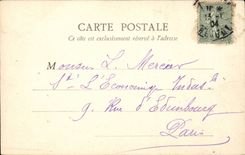 CARTE POSTALE
Ce côté est exclusivement réservé à l'adresse
Monsieur L. Mercier
L'Economique
9. Rue d'Edimbourg
Paris